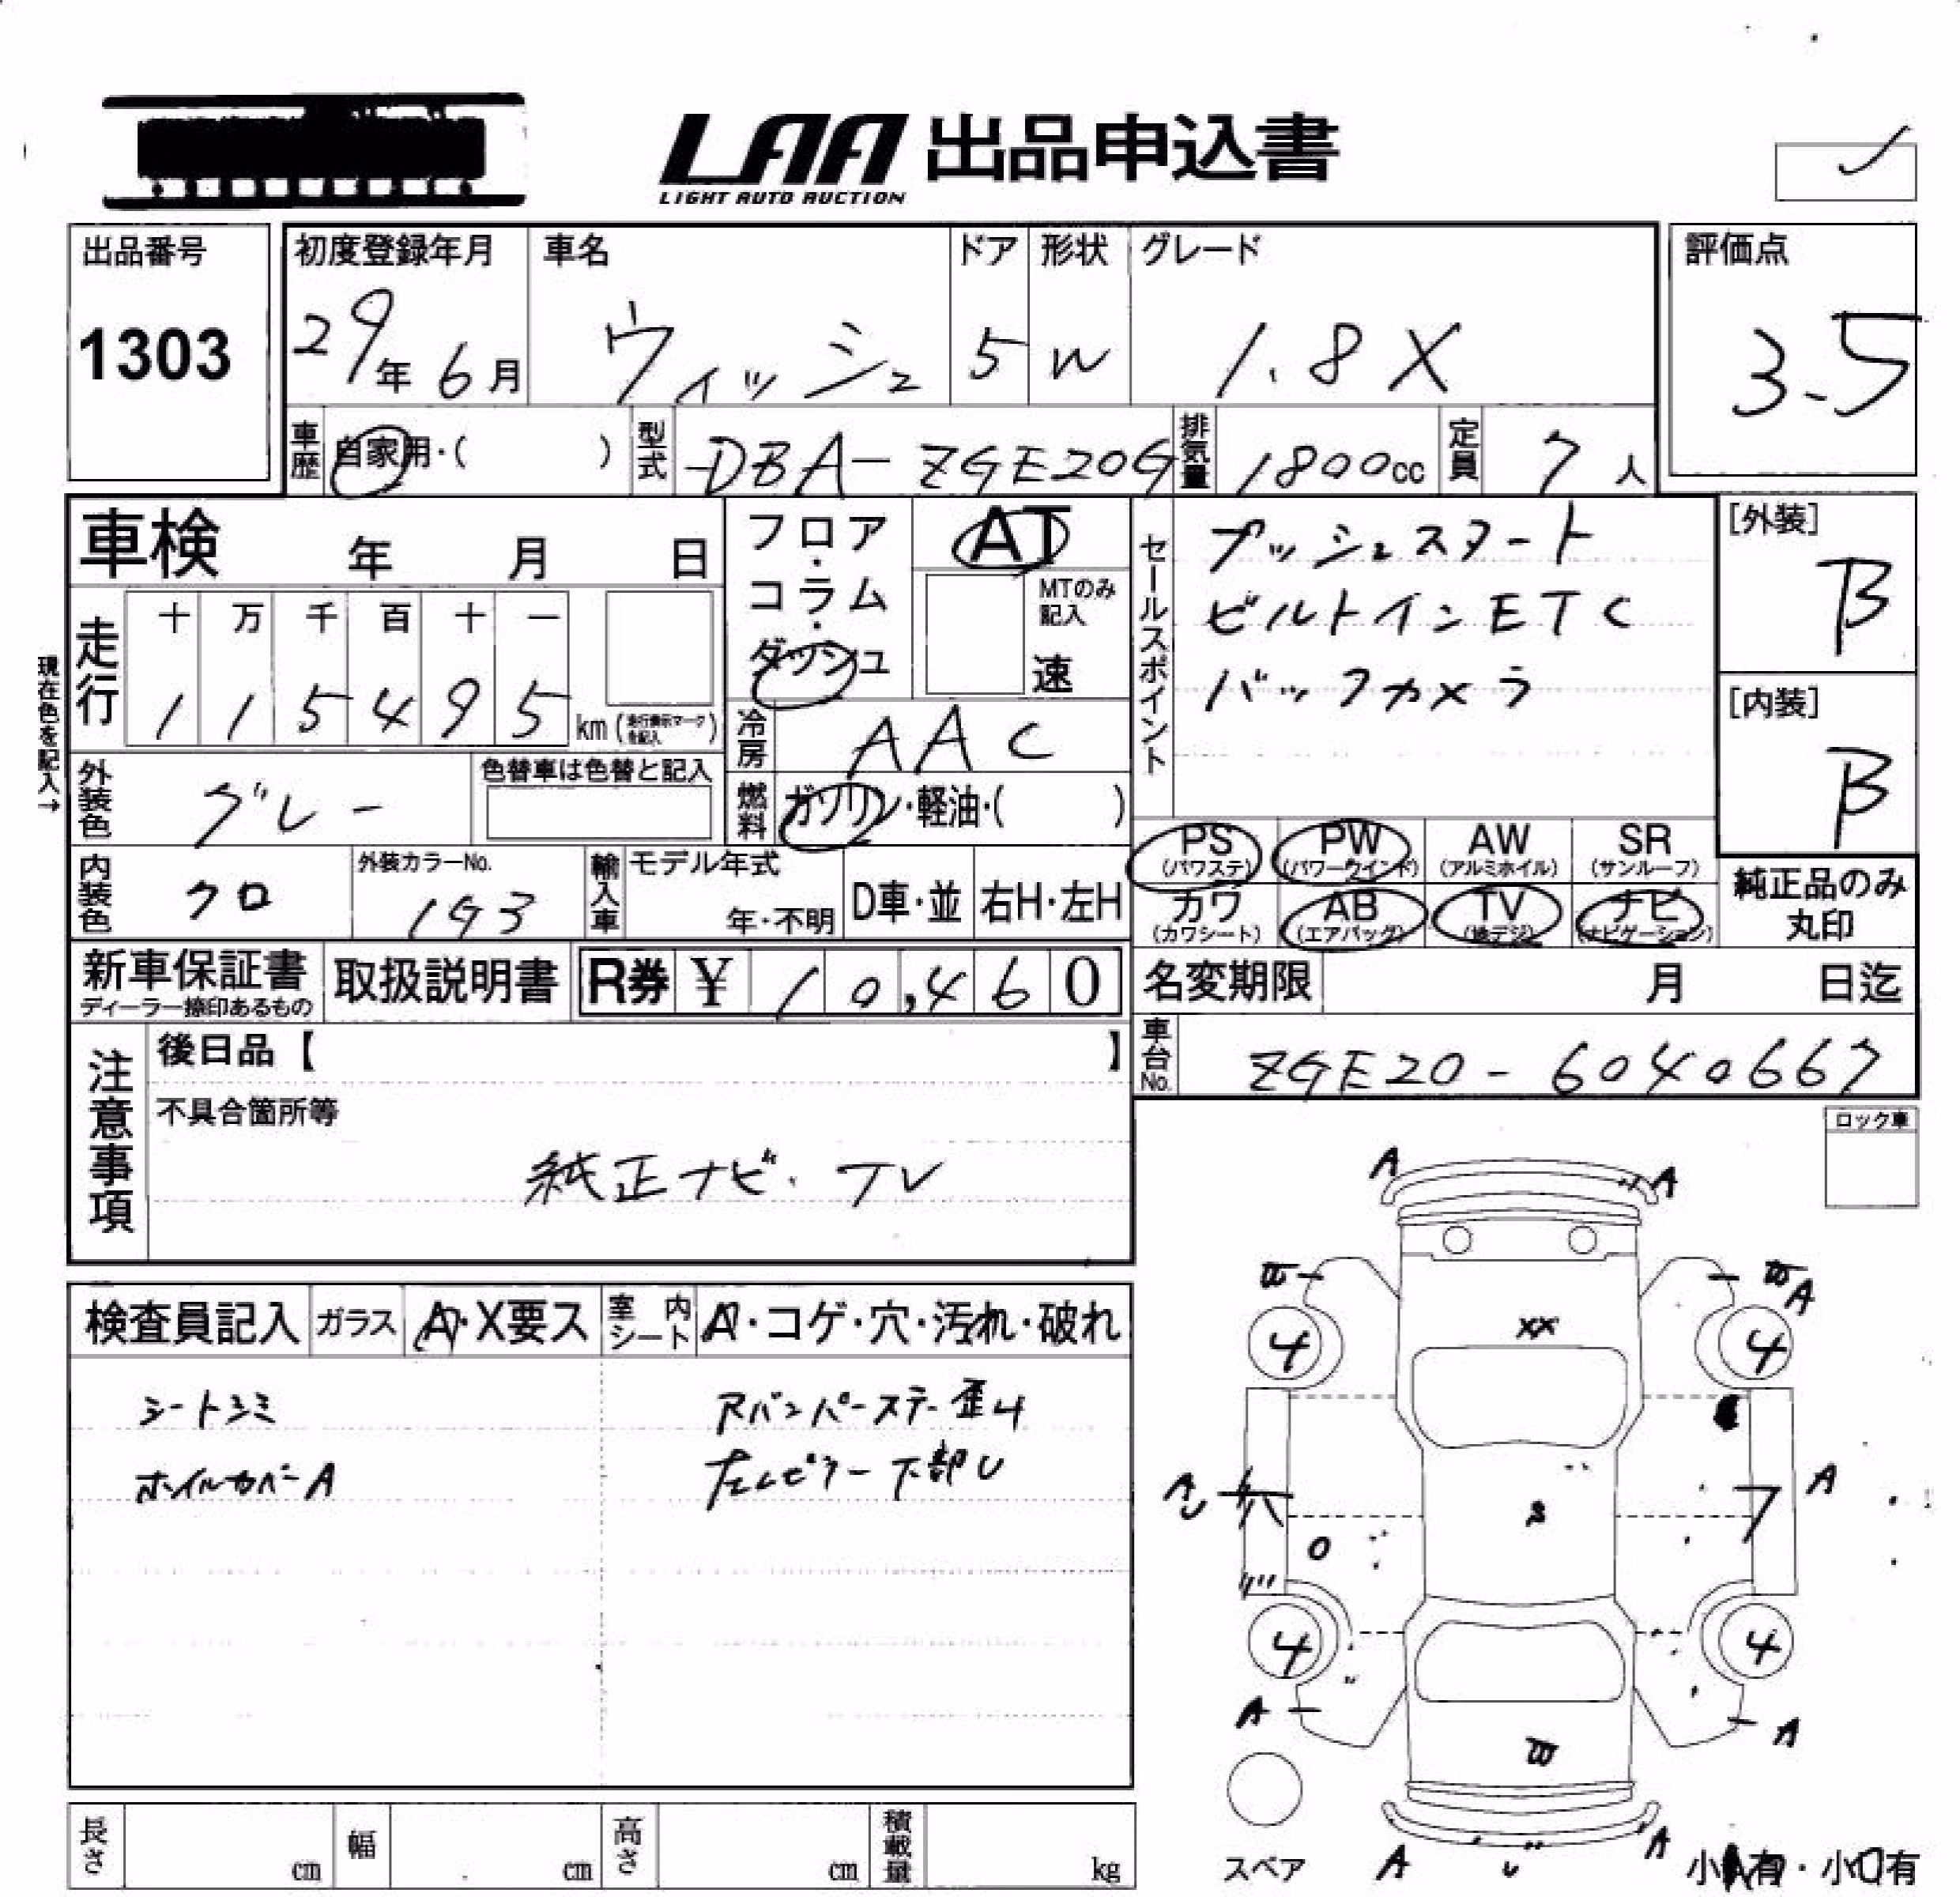 LAA 出品申込書
LIGHT AUTO AUCTION
出品番号
1303
初度登録年月
29年 6月
車名
ウィッシュ
ドア
5
形状
W
グレード
1.8X
評価点
3.5
車歴
自家用・( )
型式
DBA-ZGE20G
排気量
1800cc
定員
7人
車検 年 月 日
フロア・コラム・ダッシュ
AT
MTのみ記入
速
セールスポイント
プッシュスタート
ビルトインETC
バックカメラ
[外装]
B
[内装]
B
現在色を記入→
走行
十 万 千 百 十 一
1 1 5 4 9 5 km (走行表示マークを記入)
冷房
AAC
外装色
グレー
色替車は色替と記入
燃料
ガソリン・軽油・( )
PS (パワステ)
PW (パワーウインド)
AW (アルミホイル)
SR (サンルーフ)
内装色
クロ
外装カラーNo.
1G3
輸入車
モデル年式
年・不明
D車・並
右H・左H
カワ (カワシート)
AB (エアバッグ)
TV (地デジ)
ナビ (ナビゲーション)
純正品のみ丸印
新車保証書
ディーラー捺印あるもの
取扱説明書
R券 ¥ 10,460
名変期限 月 日迄
車台No.
ZGE20-6040667
注意事項
後日品【 】
不具合箇所等
純正ナビ・TV
ロック車
検査員記入
ガラス
A・X要ス
室内シート
A・コゲ・穴・汚れ・破れ
シートシミ
ホイルカバーA
Rバンパーステー歪み
左Lピラー下部U
A A
W W A
4 4
XX
A U A
S
4 4
A A
W
A U A
スペア
小A有・小U有
長さ cm
幅 cm
高さ cm
積載量 kg